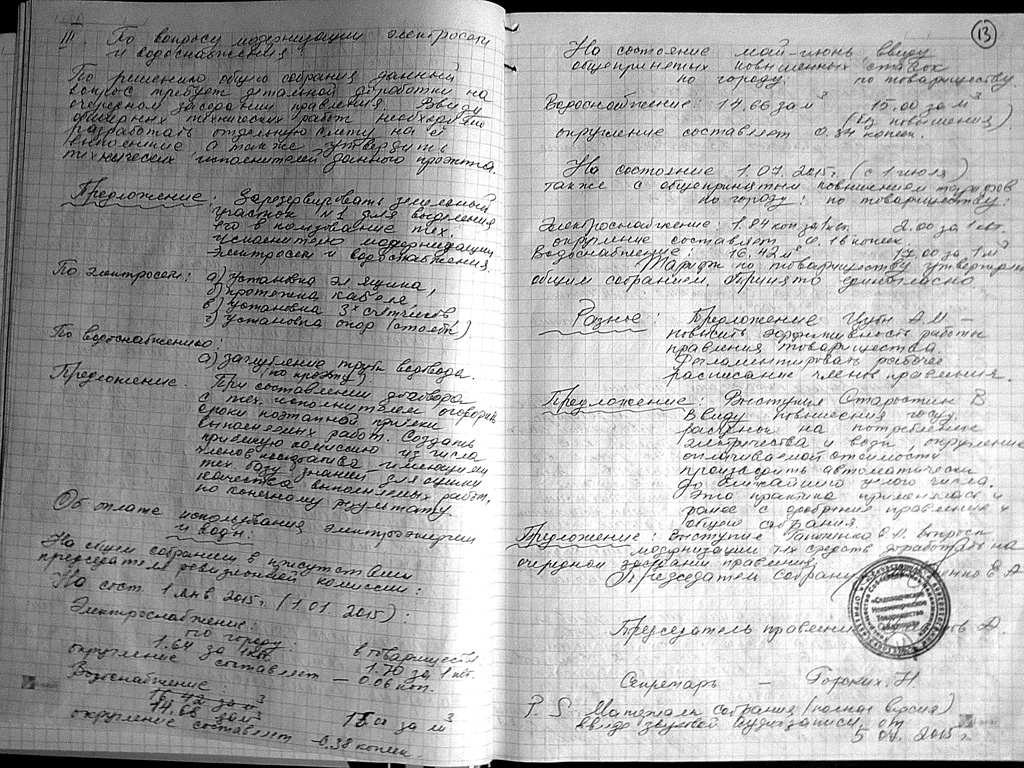 III. По вопросу модернизации электросети
и водоснабжения
По решению общего собрания данный
вопрос требует детальной доработки на
очередном заседании правления. Ввиду
обширных технических работ необходимо
разработать отдельную смету на её
выполнение а также утвердить
технических исполнителей данного проэкта.
Предложение: Зарезервировать земельный
участок №1 для выделения
его в пользование тех.
исполнителю модернизации
электросети и водоснабжения.
По электросети: а) установка эл. ящика,
б) протяжка кабеля,
в) установка 3х счётчиков
г) установка опор (столбы)
По водоснабжению:
а) заглубление трубы водовода.
(по проэкту)
Предложение. При составлении договора
с тех. исполнителем оговорить
сроки поэтапной приёмки
выполняемых работ. Создать
приёмную комиссию из числа
членов кооператива имеющими
тех. базу знаний для оценки
качества выполняемых работ,
по конечному результату.
Об оплате использования электроэнергии
и воды:
На общем собрании в присутствии
председателя ревизионной комиссии:
На сост. 1 янв 2015г. (1.01.2015):
Электроснабжение:
по городу: в товариществе
1.64 за 1 квт 1.70 за 1 квт.
округление составляет – 0.06 коп.
Водоснабжение:
за м³
14.66 за м³ за м³
округление составляет 0.38 копеек
13
На состояние май-июнь ввиду
общепринятых повышенных ставок
по городу: по товариществу.
Водоснабжение: 14,66 за м³ 15,00 за м³
(без повышения)
округление составляет 0.34 копеек.
На состояние 1.07.2015г. (с 1 июля)
также с общепринятым повышением тарифов
по городу: по товариществу:
Электроснабжение: 1.84 коп за 1 квт. 2.00 за 1 квт.
округление составляет 0.16 копеек
Водоснабжение: 16.42 м³ 17.00 за 1 м³
Тариф по товариществу утверждён
общим собранием. Принято единогласно
Разное: Предложение А.И –
повысить эффективность работы
правления товарищества.
Регламентировать рабочее
расписание членов правления.
Предложение: Выступил Старостин В
Ввиду повышения госуд.
расценок на потребление
электричества и воды, округление
оплачиваемой стоимости
производить автоматически
до ближайшего целого числа.
Это практика применялась и
ранее с одобрения правления и
общего собрания.
Предложение: Выступил В.Н. вопросы
модернизации тех средств доработать на
очередном заседании правления.
Председатель собрания Е А
Председатель правления А.
Секретарь – Горских Н.
P. S. Материалы собрания (полная версия)
ввиде звуковой аудиозаписи, от
5 07. 2015г.
«Садоводческое
Некоммерческое
Товарищество